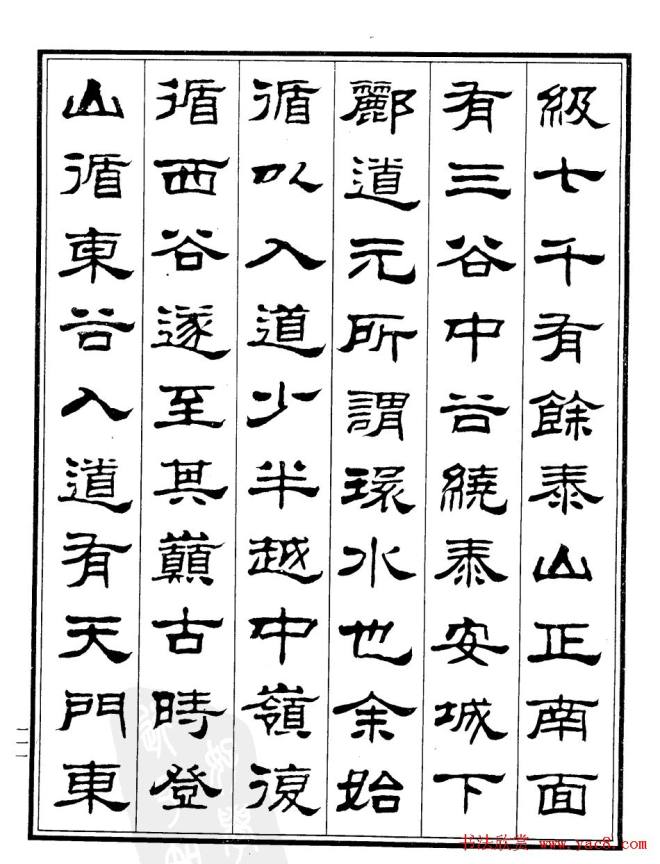 級七千有餘泰山正南面
有三谷中谷繞泰安城下
酈道元所謂環水也余始
循以入道少半越中嶺復
循西谷遂至其巔古時登
山循東谷入道有天門東
二一
书法欣赏 www.yac8.com